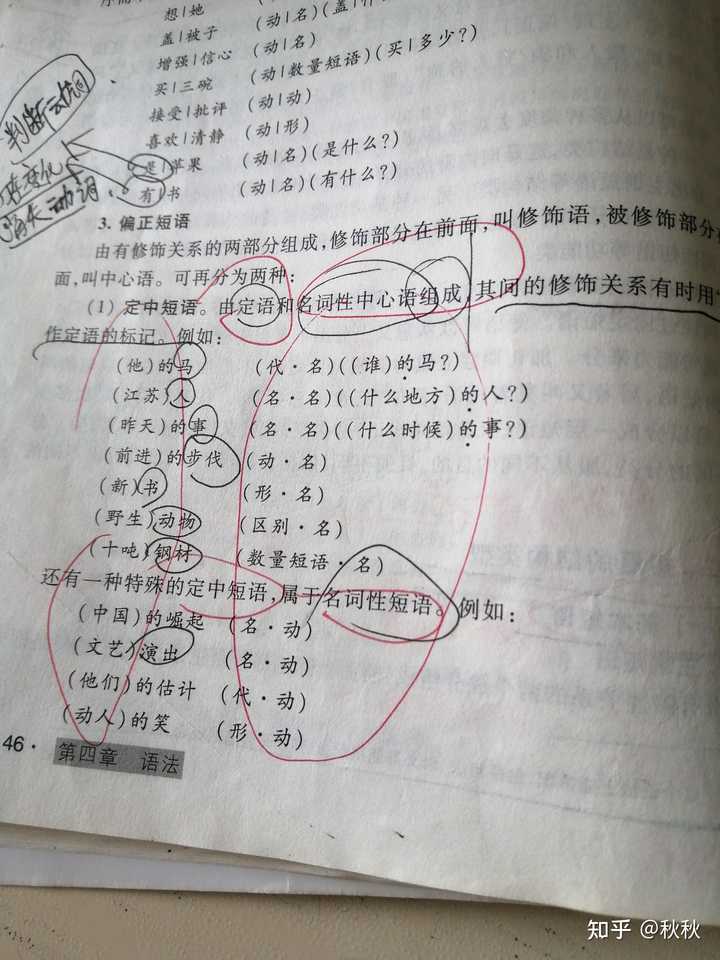 想|她
盖|被子 (动|名)
增强|信心 (动|名)
买|三碗 (动|数量短语)(买|多少?)
接受|批评 (动|动)
喜欢|清静 (动|形)
是|苹果 (动|名)(是什么?)
有|书 (动|名)(有什么?)
判断动词
消失动词
3. 偏正短语
由有修饰关系的两部分组成,修饰部分在前面,叫修饰语,被修饰部分
面,叫中心语。可再分为两种:
(1) 定中短语。由定语和名词性中心语组成,其间的修饰关系有时用
作定语的标记。例如:
(他)的马 (代·名)((谁)的马?)
(江苏)人 (名·名)((什么地方)的人?)
(昨天)的事 (名·名)((什么时候)的事?)
(前进)的步伐 (动·名)
(新)书 (形·名)
(野生)动物 (区别·名)
(十吨)钢材 (数量短语·名)
还有一种特殊的定中短语,属于名词性短语。例如:
(中国)的崛起 (名·动)
(文艺)演出 (名·动)
(他们)的估计 (代·动)
(动人)的笑 (形·动)
46· 第四章 语法
知乎 @秋秋